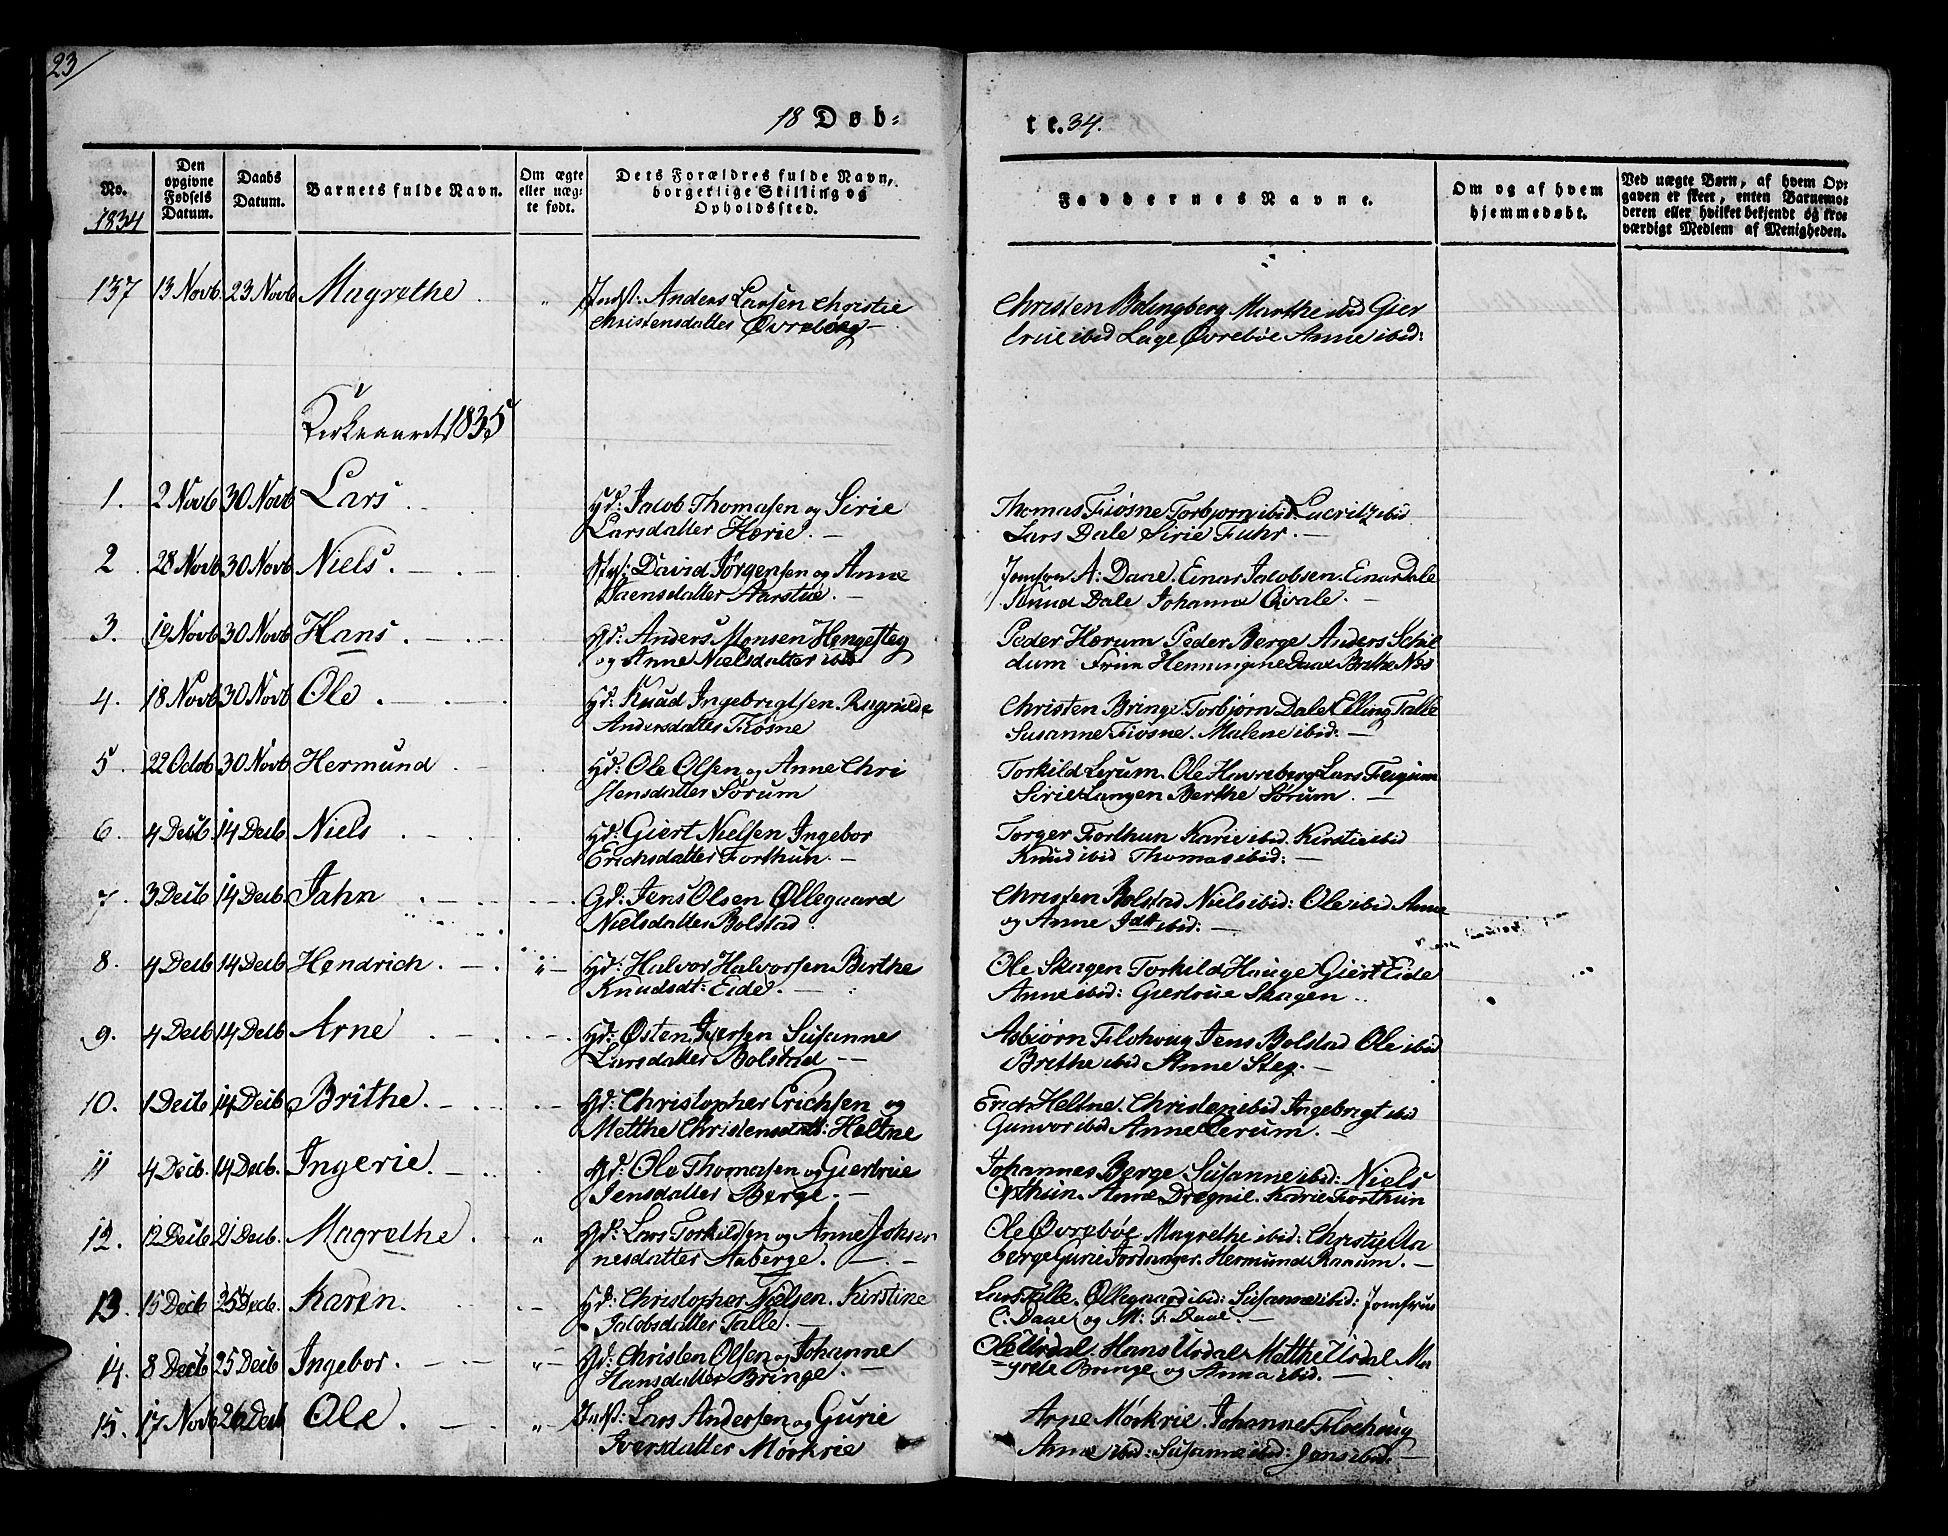 23
18 Døb-
te. 34.
No.
1834
Den opgivne Fødsels Datum.
Daabs Datum.
Barnets fulde Navn.
Om ægte eller uæg-te født.
Dets Forældres fulde Navn, borgerlige Stilling og Opholdssted.
Faddernes Navne.
Om og af hvem hjemmedøbt.
Ved uægte Børn, af hvem Op-gaven er skeet, enten Barnemo-deren eller hvilket bekjendt og tro-værdigt Medlem af Menigheden.
137 13 Novb 23 Novb Magrethe. " Indst: Anders Larsen Christie
Christensdatter Øvrebøeg —
Christen Bolingberg Marthe ibid Gier
true ibid Lage Øvrebøe Anne ibid:
Kirkeaaret 1835
1. 2 Novb 30 Novb Lars. Gd: Jacob Thomasen og Sirie
Larsdatter Hærie. —
Thomas Fiøsne Torbjorn ibid: Lucritz ibid
Lars Dale Sirie Fuhr. —
2 28 Novb 30 Novb Niels. David Jørgensen og Anne
Daensdatter Aarstue. —
Jomfru A: Daae. Einar Jacobsen. Einar Dale
Knud Dale Johanne Qvale. —
3. 19 Novb 30 Novb Hans. Gd: Anders Monsen Hengesteg
og Anne Nielsdatter ibid
Peder Hærum Peder Berge Anders Schil
dum Fruu Henningine Daae Brithe Næs
4. 18 Novb 30 Novb Ole. Gd: Knud Ingebrigtsen Ragnilde
Andersdatter Fiøsne
Christen Bringe Torbjørn Dale Elling Talle
Susanne Fiøsne. Malene ibid: —
5. 22 Octob 30 Novb Hermund Gd: Ole Olsen og Anne Chri
stensdatter Sørum
Torkild Lerum. Ole Havreberg Lars Feigum
Sirie Langen Berthe Sørum. —
6. 4 Decb 14 Decb Niels Gd: Giert Nielsen Ingebor
Erichsdatter Forthun. —
Torger Forthun Karie ibid Kirstie ibid
Knud ibid Thomas ibid: —
7. 3 Decb 14 Decb. Jahn Gd: Jens Olsen Øllegaard
Nielsdatter Bolstad.
Christen Bolstad Niels ibid: Ole ibid Anne
og Anne Jdtt ibid: —
8. 4 Decb 14 Decb Hendrich. " Gd: Halvor Halvorsen Birthe
Knudsdt: Eide. —
Ole Skagen Torkild Hauge Giert Eide
Anne ibid: Giertrue Skagen
9. 4 Decb 14 Decb Arne Gd: Østen Iversen Susanne
Larsdatter Bolstad —
Asbiørn Flohoug Jens Bolstad Ole ibid
Brithe ibid Anne Steg. —
10. 1 Decb 14 Decb Brithe. Gd: Christopher Erichsen og
Metthe Christensdatt: Heltne
Erich Heltne. Christen ibid Ingebrigt ibid
Gunvor ibid Anne Lerum. —
11 4 Decb. 14 Decb. Ingerie. Gd: Ole Thomasen og Giertrue
Jensdatter Berge. —
Johannes Berge. Susanne ibid: Niels
Opthun. Anne Drægnie. Karie Forthun
12. 12 Decb 21 Decb. Magrethe. " Gd: Lars Torkildsen og Anne Johan
nesdatter Aaberge. —
Ole Øvrebøe Magrethe ibid: Christie Aa
berge Gurie Jordanger. Hermund Raaum. —
13. 15 Decb 25 Decb. Karen. Gd: Christopher Nielsen. Kirstine
Jacobsdatter Talle. —
Lars Talle. Øllegaard ibid: Susanne ibid: Jomfrues
C: Daae og M: F: Daae. —
14. 8 Decb 25 Decb Ingebor. " Gd: Christen Olsen og Johanne
Hansdatter Bringe. —
Ole Urdal. Hans Urdal. Metthe Urdal Ma
grete Bringe og Anna ibid. —
15. 17 Novb 26 Decb Ole. " Indst: Lars Andersen og Gurie
Iversdatter Mørkrie
Arne Mørkrie. Johannes Flohoug
Anne ibid: Susanne ibid: Jens ibid: —